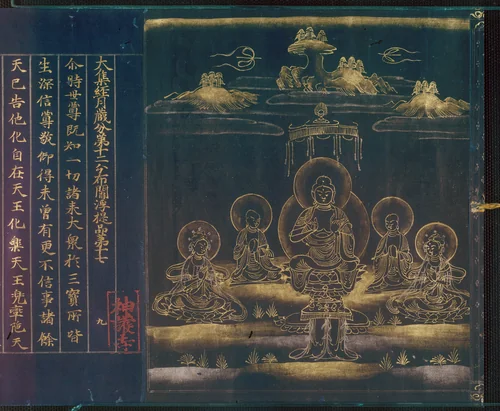 大集經月藏分第十二分布閻浮提品第七
尒時世尊既知一切諸来大衆於三寶所皆
生深信尊敬仰得未曾有更不信事諸餘
天已告他化自在天王化樂天王兜率陁天
九
神護寺